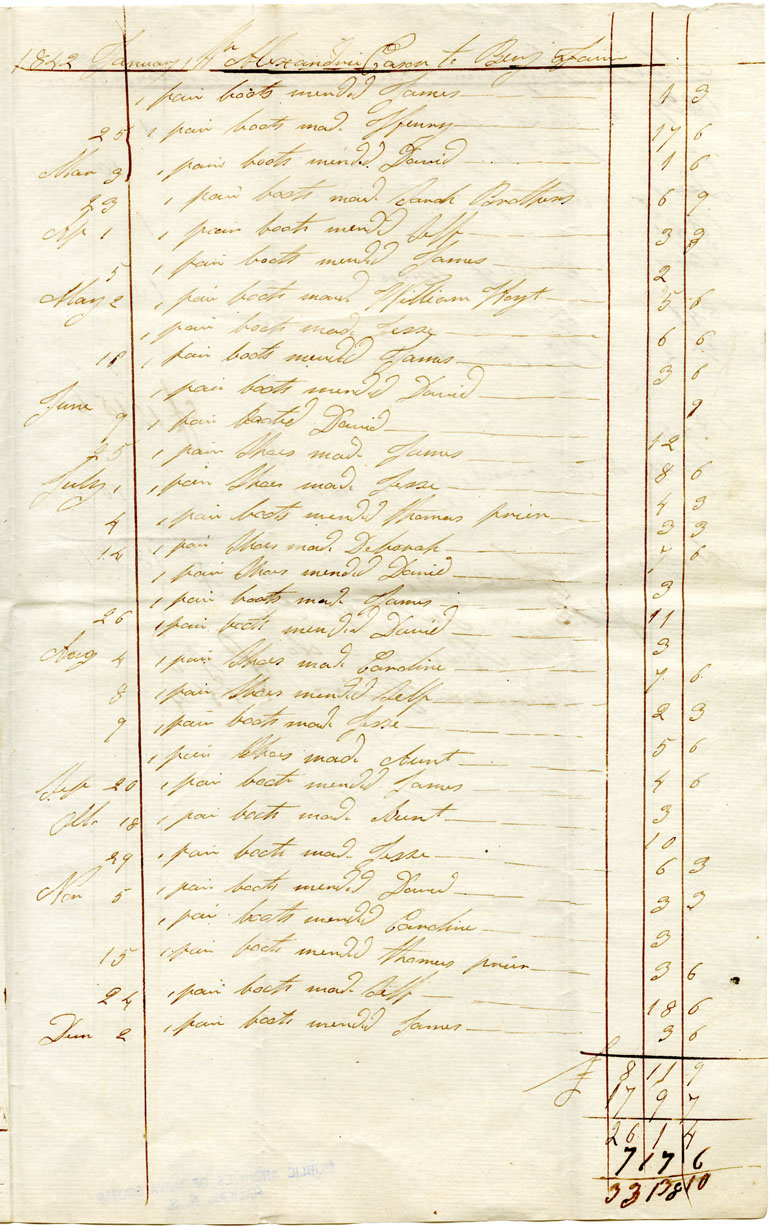 1842 January 1th Alexander Eason to Benj
1 pair boots mended James 1 3
25 1 pair boots made 17 6
Mar 3 1 pair boots mended David 1 6
23 1 pair boots made Sarah Brothers 6 9
Ap 1 1 pair boots mended Self 3 3
5 1 pair boots mended James 2
May 2 1 pair boots made William Hoyt 5 6
1 pair boots made Jesse 6 6
18 1 pair boots mended James 3 6
1 pair boots mended David 9
June 9 1 pair David 12
25 1 pair Shoes made James 8 6
July 1 1 pair Shoes made Jesse 4 3
4 1 pair boots mended thomas prier 3 3
14 1 pair Shoes made Deborah 7 6
1 pair Shoes mended David 3
1 pair boots made James 11
26 1 pair boots mended David 3
Aug 4 1 pair Shoes made Caroline 7 6
8 1 pair Shoes mended Self 2 3
9 1 pair boots made Jesse 5 6
1 pair Shoes made Aunt 4 6
Sep 20 1 pair boots mended James 3
18 1 pair boots made Aunt 10
29 1 pair boots made Jesse 6 3
Nov 5 1 pair boots mended David 3 3
1 pair boots mended Caroline 3
15 1 pair boots mended thomas prier 3 6
24 1 pair boots made Self 18 6
Dem 2 1 pair boots mended James 3 6
£ 8 11 9
17 9 7
26 1 4
7 17 6
33 18 10
PUBLIC ARCHIVES OF NOVA SCOTIA
HALIFAX, N. S.